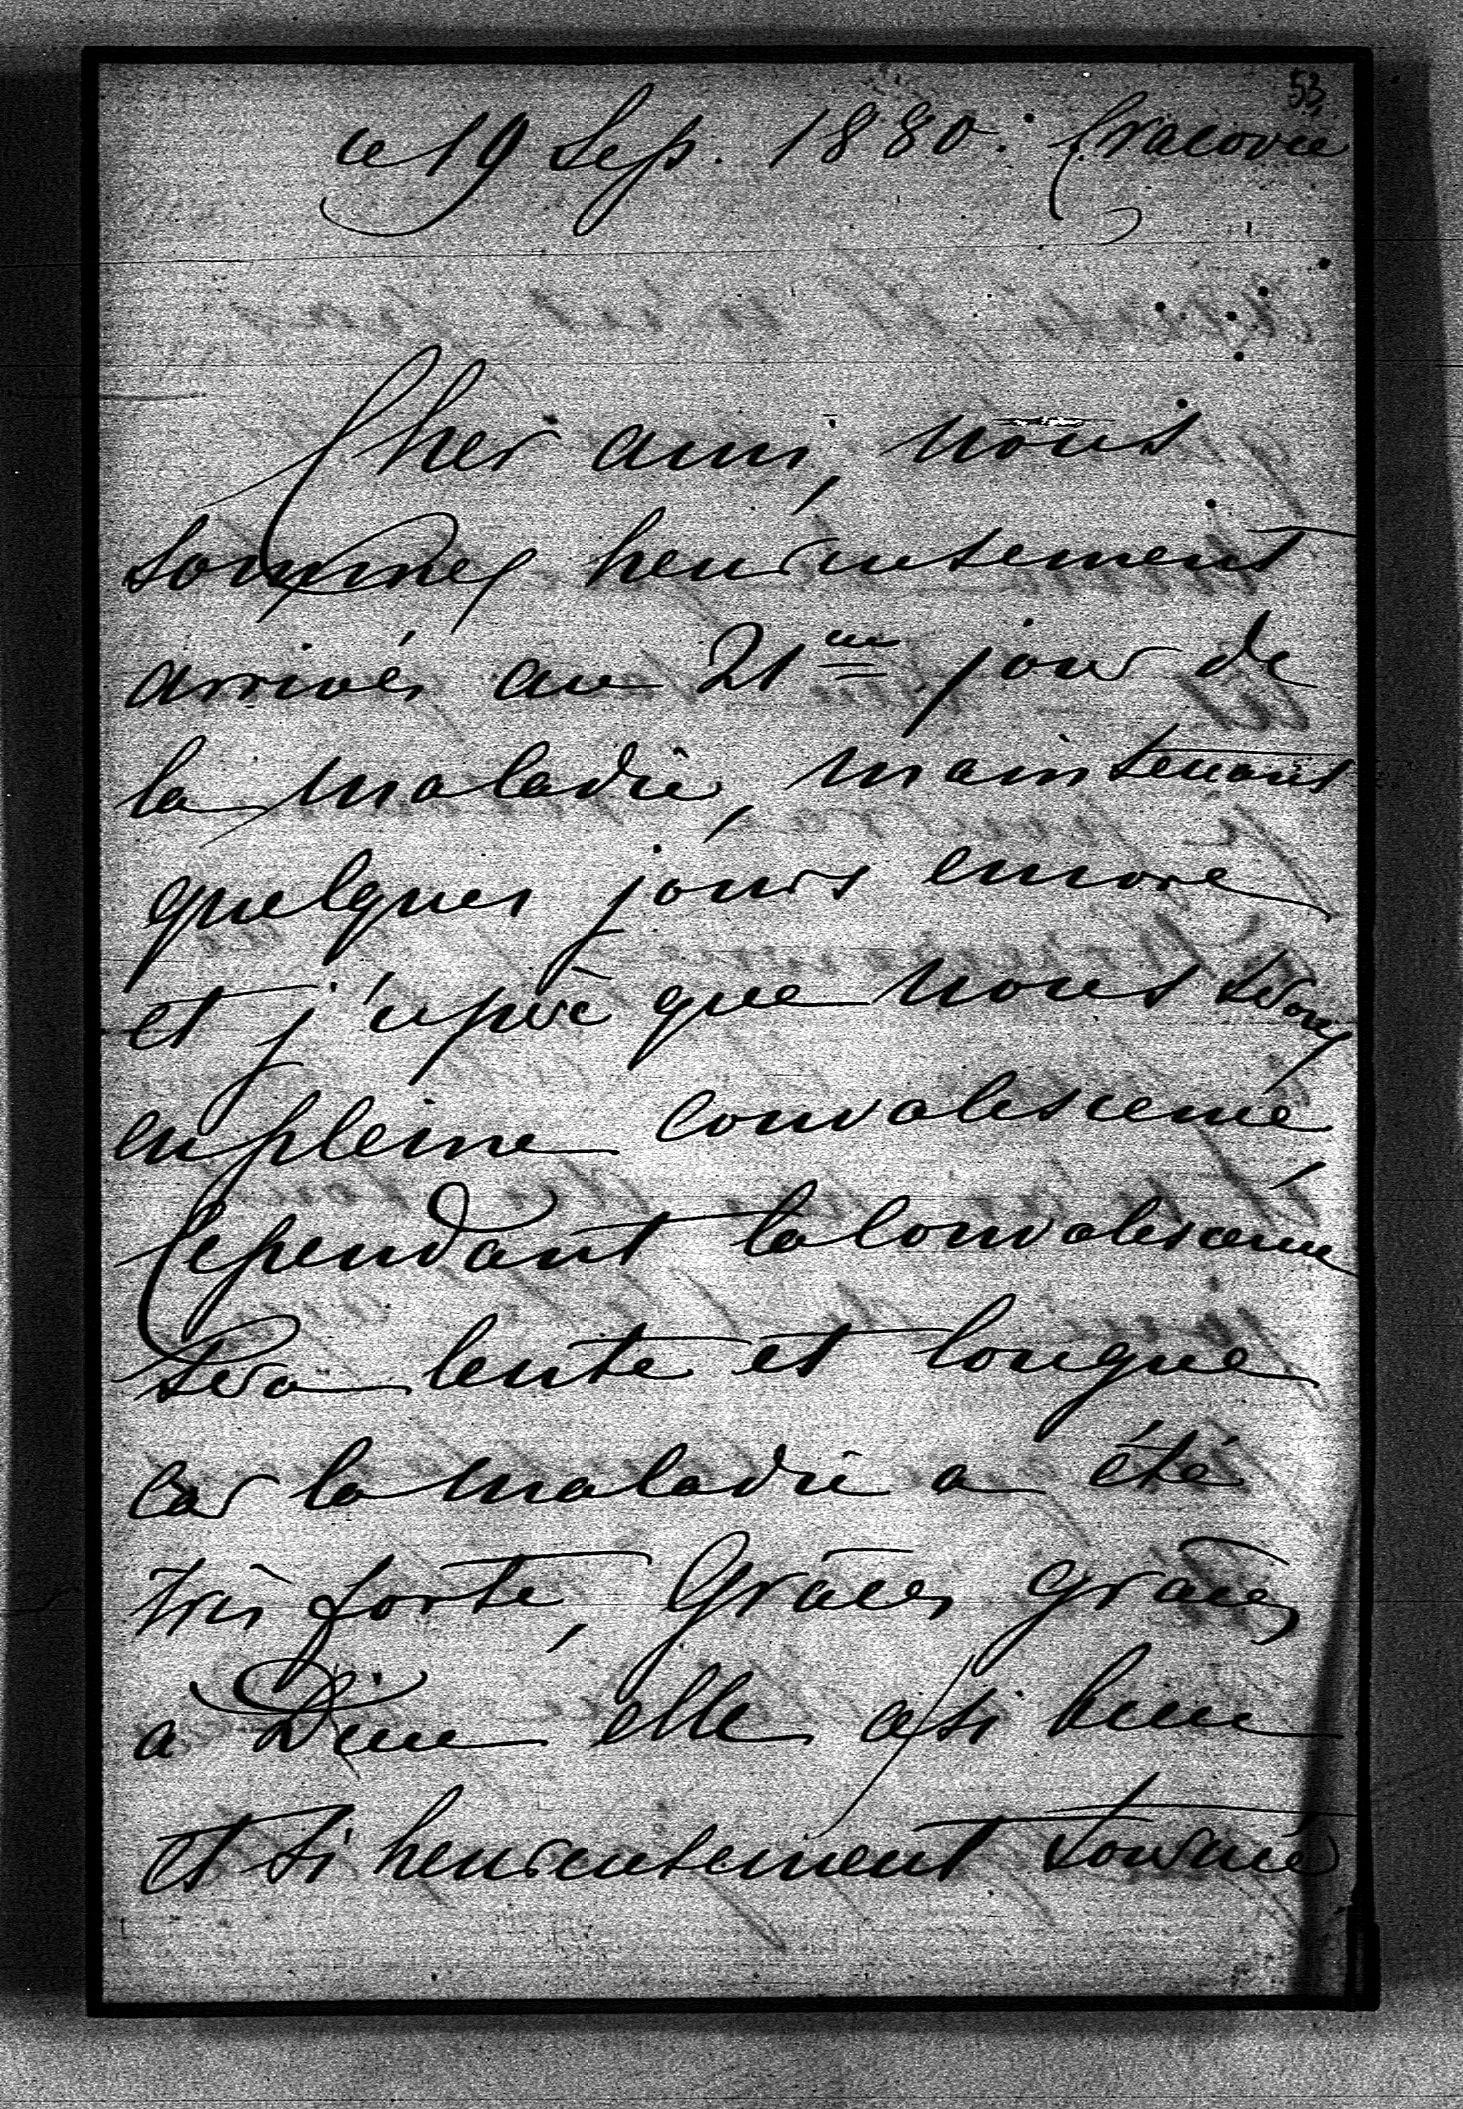 53
ce 19 Sep. 1880. Cracovie
Cher ami, nous
sommes heureusement
arrivés au 21me jour de
la maladie, maintenant
quelques jours encore
et j'espère que nous serons
en pleine convalescence
Cependant la convalescence
sera lente et longue
car la maladie a été
très forte, Grâces, grâces
a Dieu elle a si bien
et si heureusement tourné